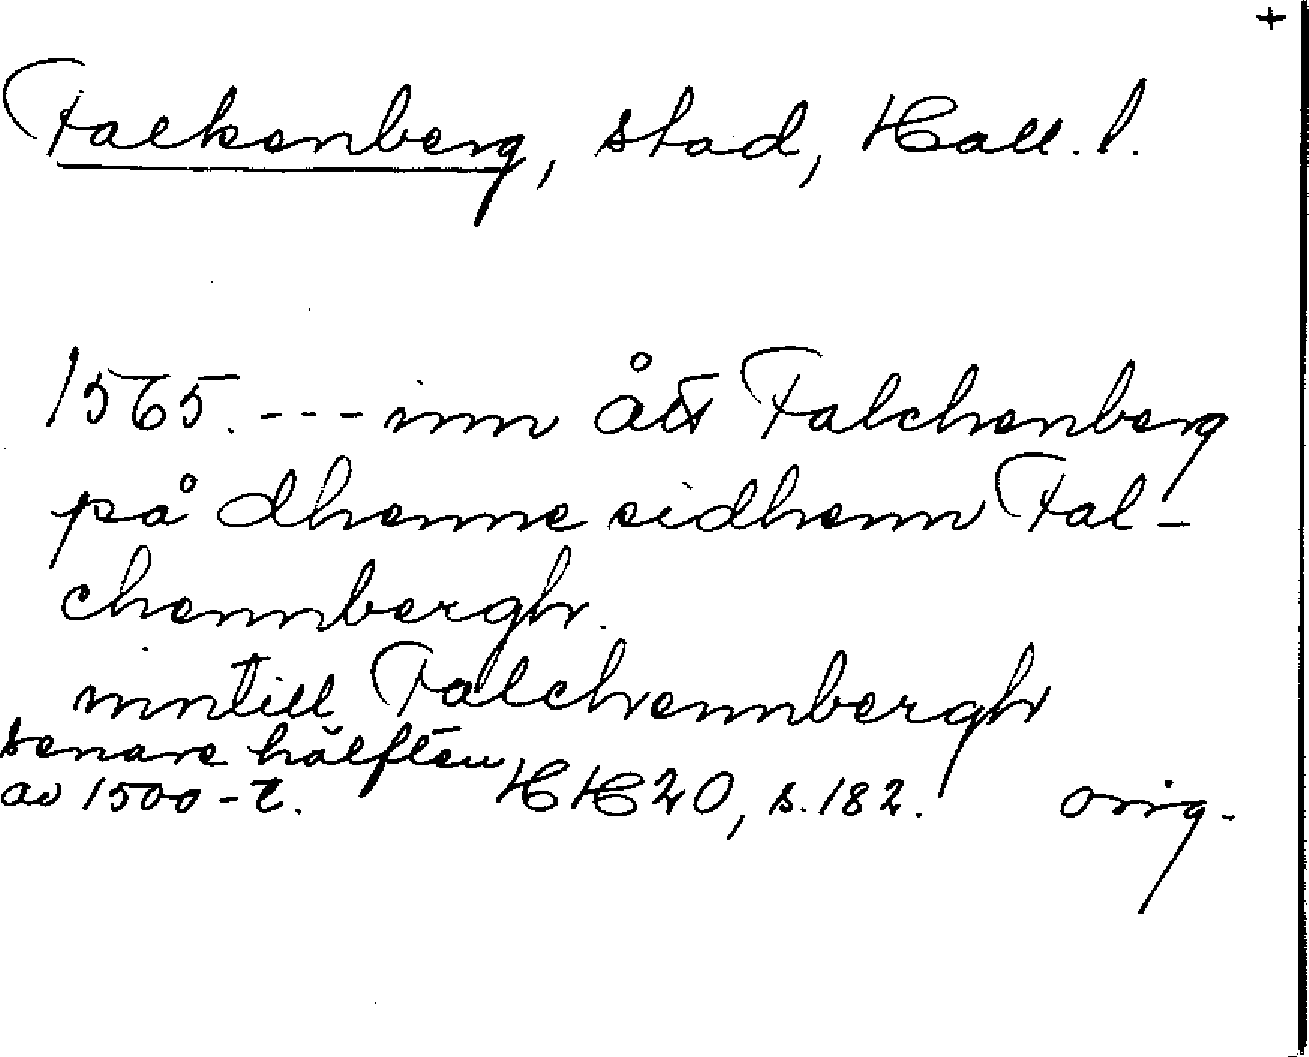 +
Falkenberg, stad, Hall. l.
1565. --- inn ått Falchenberg
på dhenne sidhenn Fal-
chennbergh.
inntill Falchennbergh
senare hälften
av 1500-t. HH20, s. 182. orig.